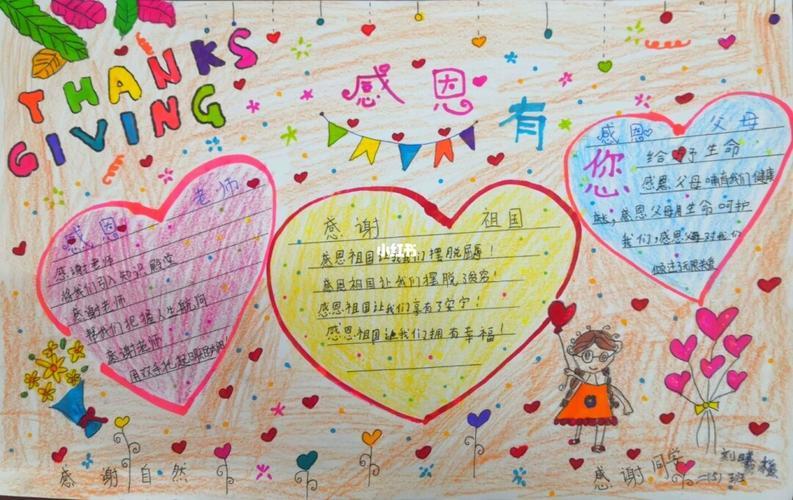 THANKS
GIVING
感恩
有
您
感恩 老师
感谢老师
将我们引入知识殿堂
感谢老师
帮我们把握人生航向
感谢老师
用双手托起
感谢 祖国
小红书
感恩祖国让我们摆脱屈辱!
感恩祖国让我们摆脱
感恩祖国让我们享有了安宁!
感恩祖国让我们拥有幸福!
感恩 父母
给予生命
感恩父母哺育我们健康
成长,感恩父母用生命呵护
我们,感恩父母对我们
感谢自然
感谢同学
刘
班